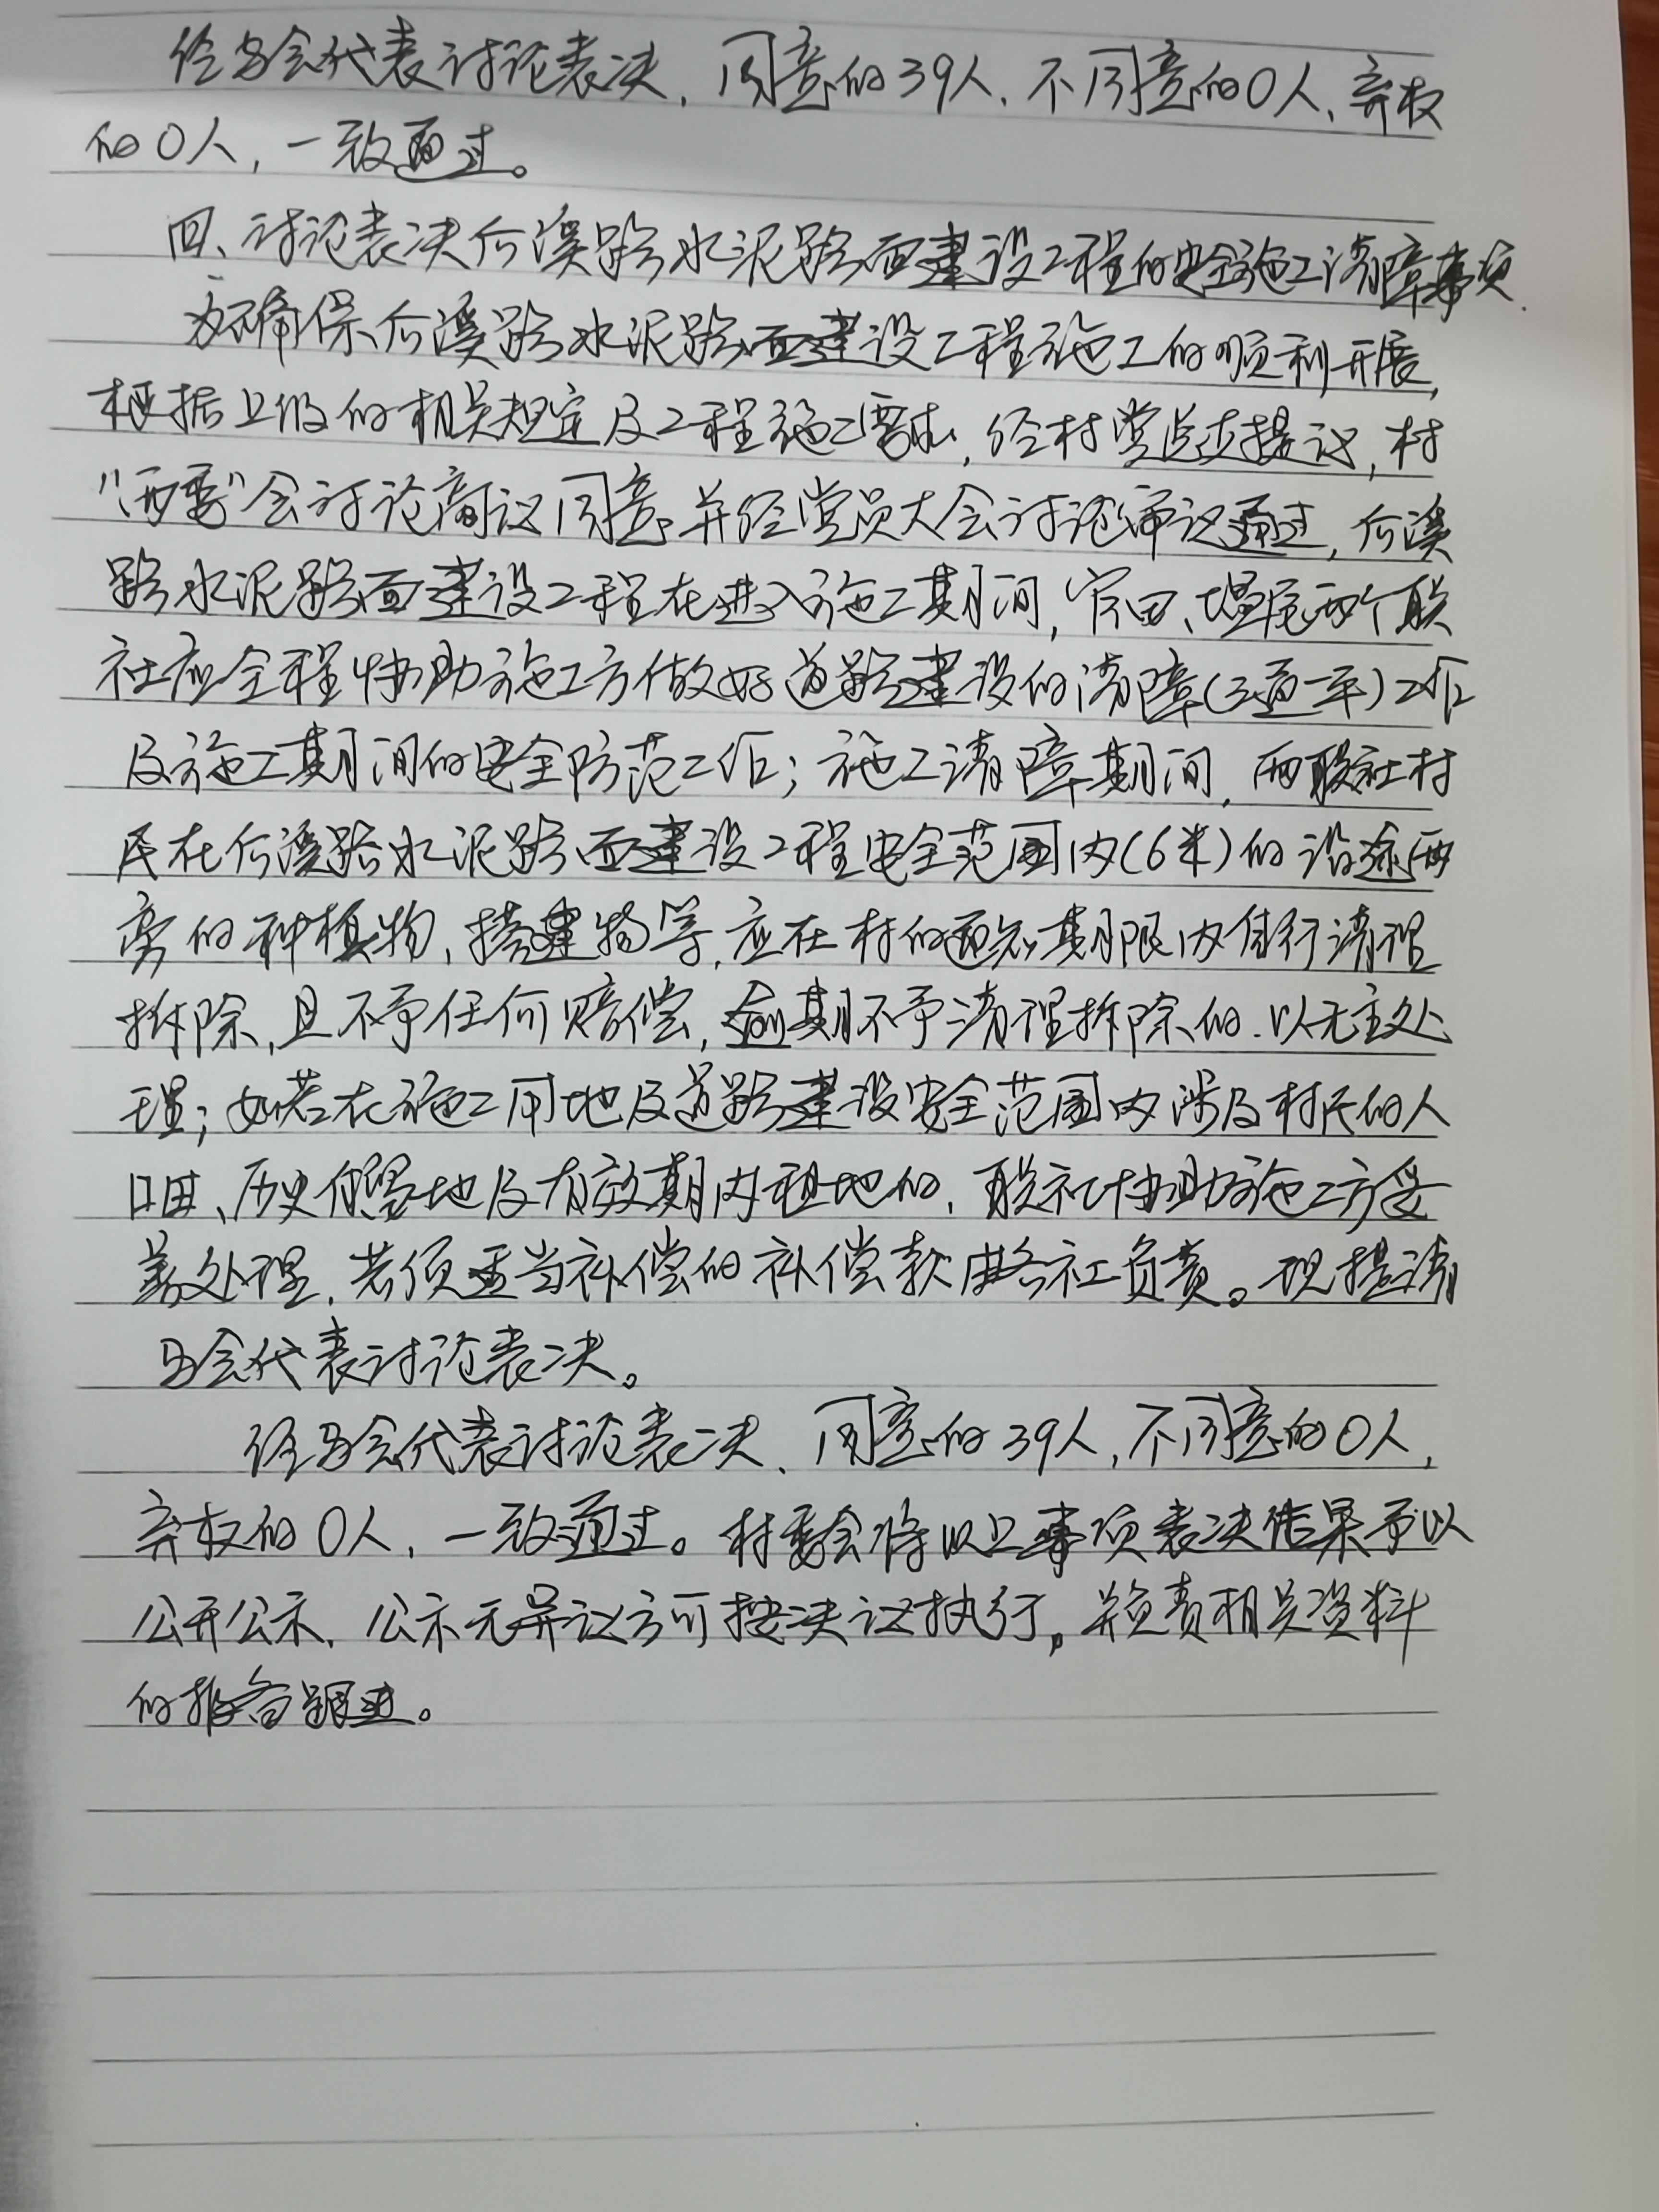 经与会代表讨论表决，同意的39人，不同意的0人，弃权
的0人，一致通过。
四、讨论表决何溪路水泥路面建设工程的安全施工清障事项.
为确保何溪路水泥路面建设工程施工的顺利开展，
根据上级的相关规定及工程施工需求，经村党总支提议，村
"两委"会讨论商议同意。并经党员大会讨论审议通过，何溪
路水泥路面建设工程在进入施工期间，官田、塭尾两个联
社应全程协助施工方做好道路建设的清障(三通一平)工作
及施工期间的安全防范工作；施工清障期间，两联社村
民在何溪路水泥路面建设工程安全范围内(6米)的沿途两
旁的种植物，搭建物等，应在村的通知期限内自行清理
拆除，且不予任何赔偿，逾期不予清理拆除的，以无主处
理；如若在施工用地及道路建设安全范围内涉及村民的人
口田、历史保留地及有效期内租地的，联社协助施工方妥
善处理，若须适当补偿的补偿款由各社负责。现提请
与会代表讨论表决。
经与会代表讨论表决，同意的39人，不同意的0人，
弃权的0人，一致通过。村委会将以上事项表决结果予以
公开公示，公示无异议方可按决议执行。并负责相关资料
的报备跟进。